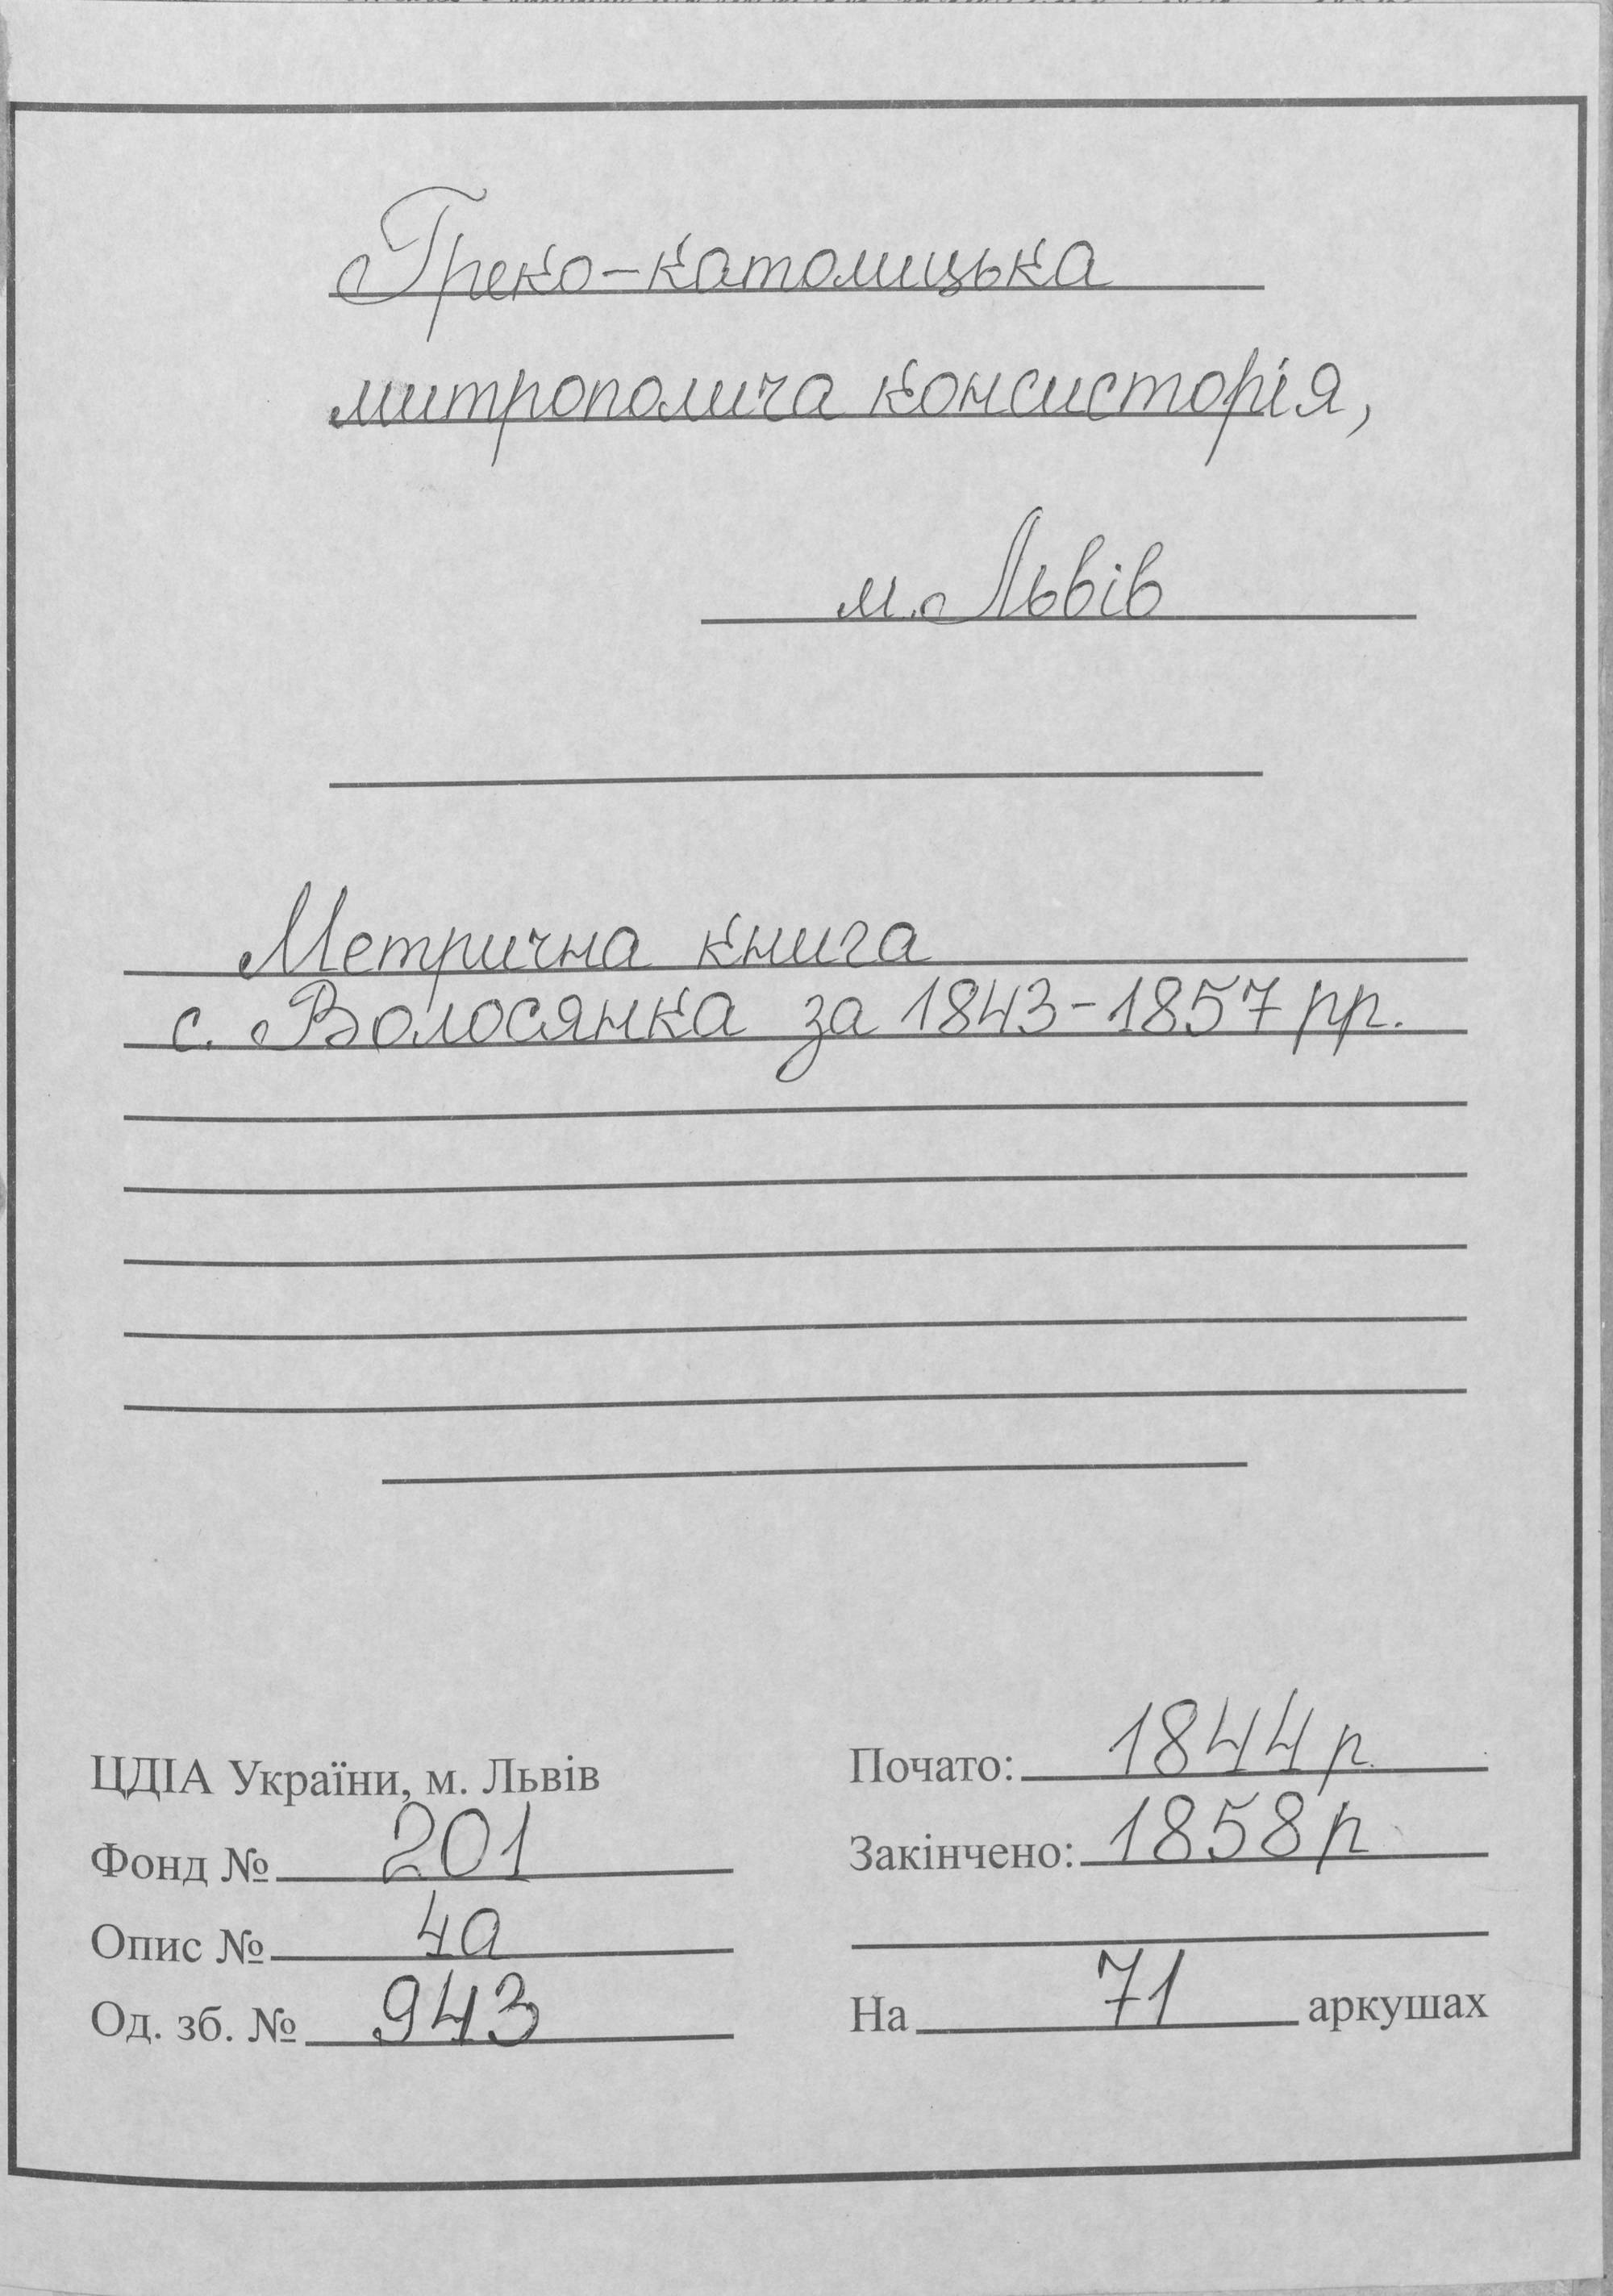 Греко-католицька
митрополича консисторія,
м. Львів
Метрична книга
с. Волосянка за 1843-1857 рр.
ЦДІА України, м. Львів
Фонд № 201
Опис № 4а
Од. зб. № 943
Почато: 1844 р.
Закінчено: 1858 р
На 71 аркушах